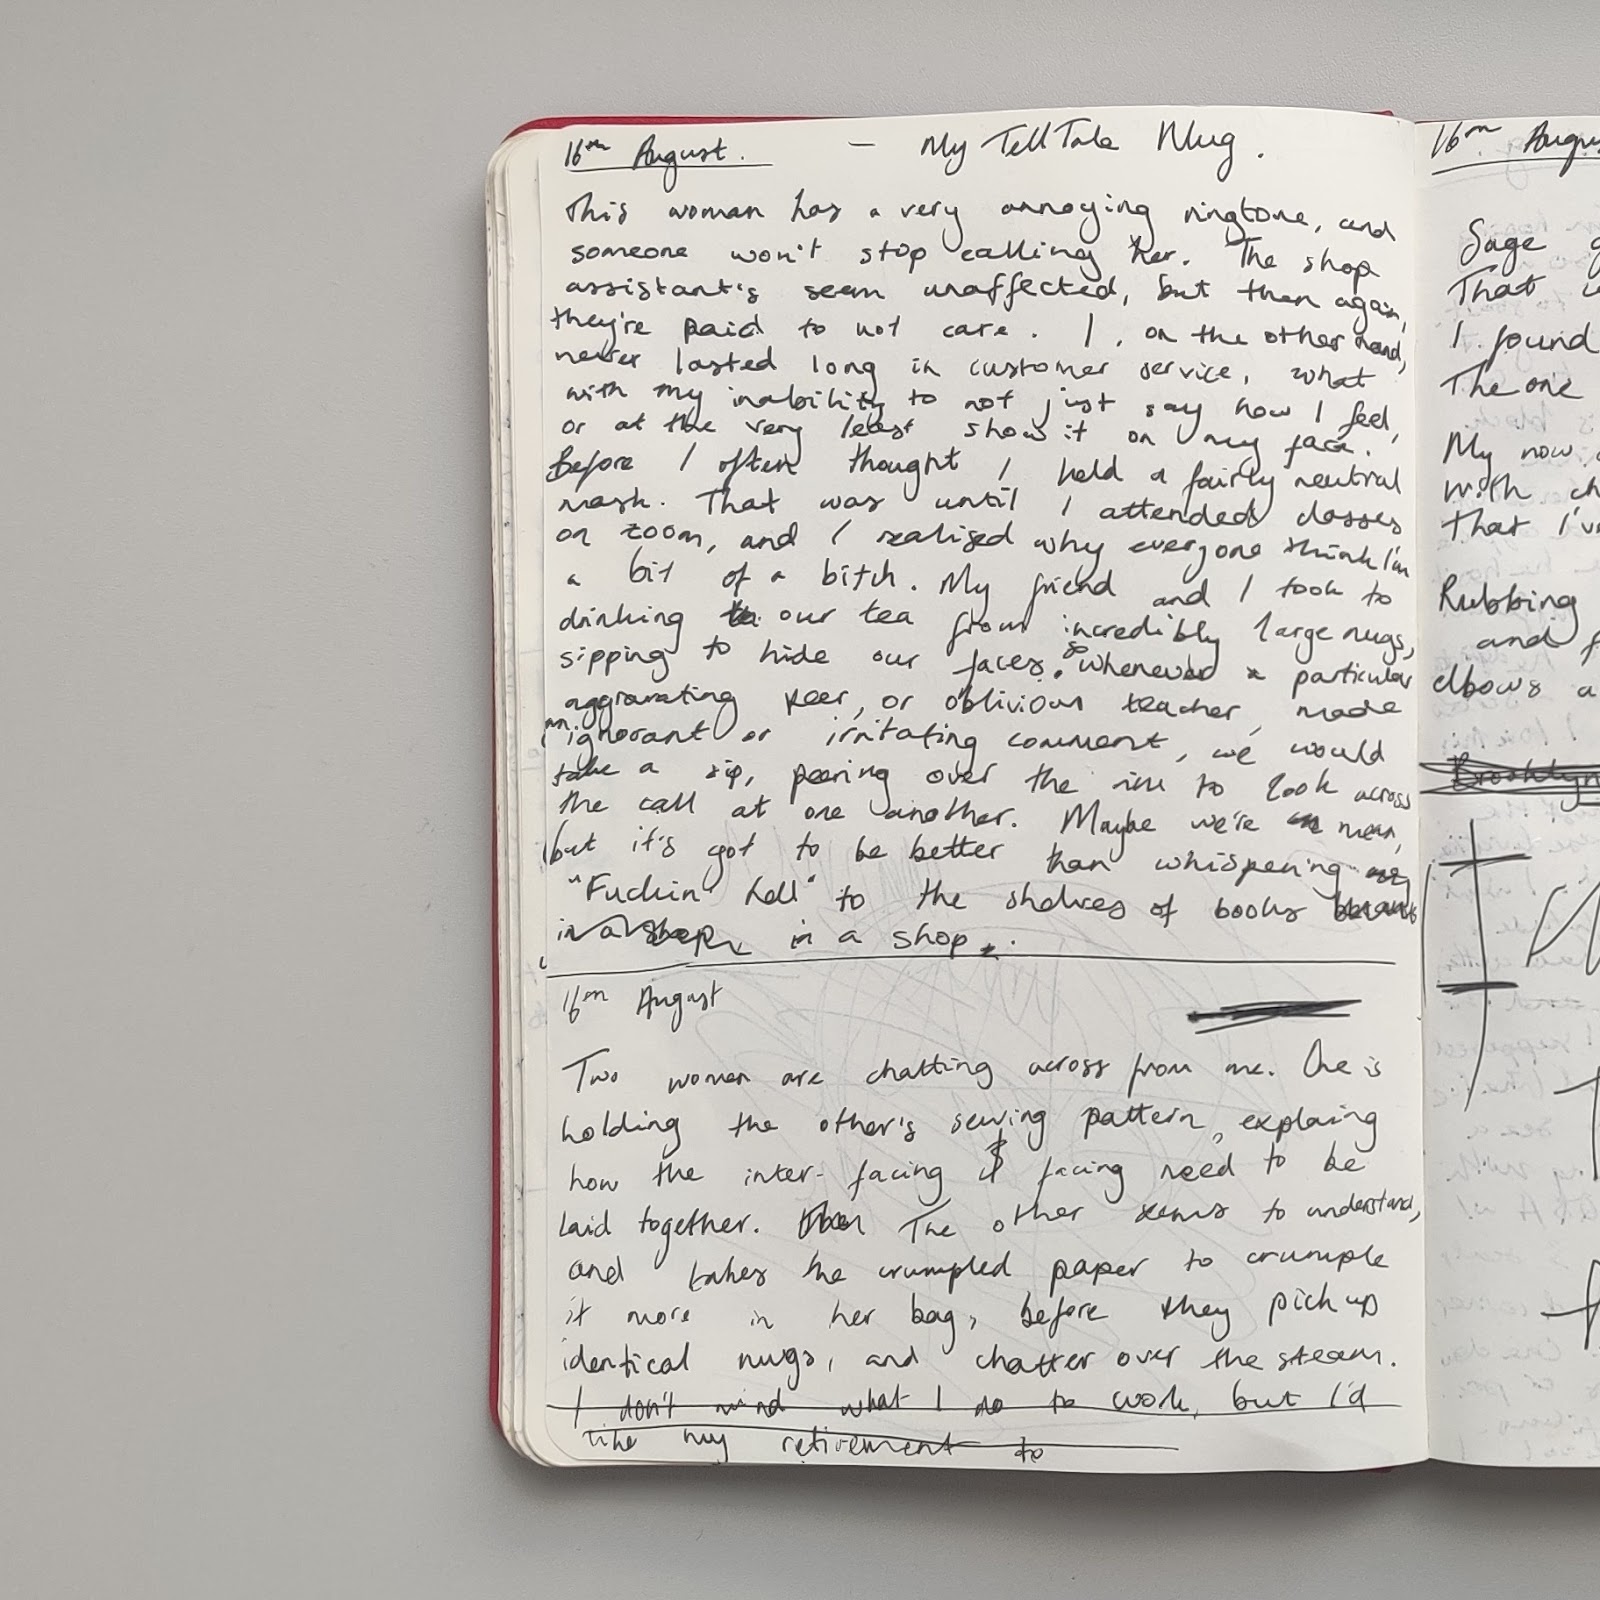 16th August. — My Tell Tale Mug.
This woman has a very annoying ringtone, and
someone won't stop calling her. The shop
assistant's seem unaffected, but then again,
they're paid to not care. I, on the other hand,
never lasted long in customer service, what
with my inability to not just say how I feel,
or at the very least show it on my face.
Before I often thought I held a fairly neutral
mask. That was until I attended classes
on zoom, and I realised why everyone think I'm
a bit of a bitch. My friend and I took to
drinking our tea from incredibly large mugs,
sipping to hide our faces. so whenever a particular
aggravating peer, or oblivious teacher, made
an ignorant or irritating comment, we would
take a sip, peering over the rim to look across
the call at one another. Maybe we're mean,
but it's got to be better than whispering
"Fuckin' hell" to the shelves of books
in a shop in a shop.
16th August
Two women are chatting across from me. One is
holding the other's sewing pattern, explaing
how the inter-facing & facing need to be
laid together. Then The other seems to understand,
and takes the crumpled paper to crumple
it more in her bag, before they pick up
identical mugs, and chatter over the steam.
I don't mind what I do to work, but I'd
like my retirement to
16th August
Sage
That
I found
The one
My now
with
that I've
Rubbing
and
elbows a
Brooklyn